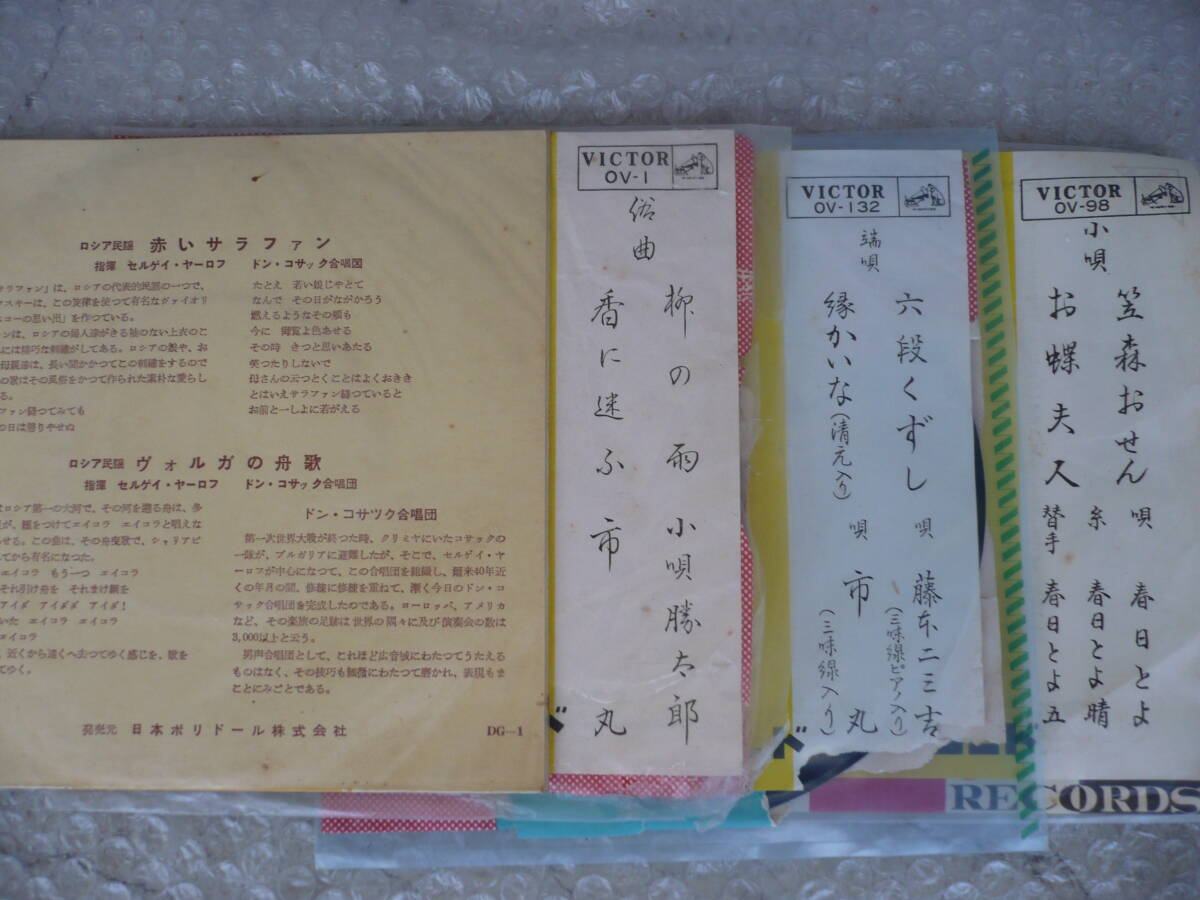 ロシア民謡 赤いサラファン
指揮 セルゲイ・ヤーロフ ドン・コサック合唱団
サラファン」は、ロシアの代表的民謡の一つで、
スキーは、この旋律を使つて有名なヴァイオリ
スコーの思い出」を作つている。
ンは、ロシアの婦人達がきる袖のない上衣のこ
には精巧な刺繍がしてある。ロシアの娘や、お
母親達は、長い間かかつてこの刺繍をするので
の歌はその民俗をかつて作られた素朴な愛らし
る。
ファン縫つてみても
の日は戀りやせぬ
たとえ 若い娘じやとて
なんで その日がながかろう
燃えるようなその頬も
今に 御覧よ色あせる
その時 きつと思いあたる
笑つたりしないで
母さんの云つとくことはよくおきき
とはいえサラファン縫つていると
お前と一しよに若がえる
ロシア民謡 ヴォルガの舟歌
指揮 セルゲイ・ヤーロフ ドン・コサック合唱団
はロシア第一の大河で、その河を遡る舟は、多
が、綱をつけてエイコラ エイコラと唱えな
せる。この曲は、その舟曳歌で、シャリアピ
てから有名になつた。
エイコラ もう一つ エイコラ
それ引け舟を それまけ綱を
アイダ アイダダ アイダ!
いた エイコラ エイコラ
エイコラ
、近くから遠くへ去つてゆく感じを、歌を
てゆく。
ドン・コサツク合唱団
第一次世界大戦が終つた時、クリミヤにいたコサックの
一隊が、ブルガリアに避難したが、そこで、セルゲイ・ヤ
ーロフが中心になつて、この合唱団を組織し、爾来40年近
くの年月の間、修練に修練を重ねて、漸く今日のドン・コ
サック合唱団を完成したのである。ヨーロッパ、アメリカ
など、その楽旅の足跡は世界の隅々に及び演奏会の数は
3,000以上と云う。
男声合唱団として、これほど広音域にわたつてうたえる
ものはなく、その技巧も極微にわたつて磨かれ、表現もま
ことにみごとである。
発売元 日本ポリドール株式会社
DG-1
VICTOR
OV-1
俗曲
柳の雨 小唄勝太郎
香に迷ふ 市丸
VICTOR
OV-132
端唄
六段くずし 唄 藤本二三吉
(三味線ピアノ入り)
縁かいな(清元入り) 唄 市丸
(三味線入り)
VICTOR
OV-98
小唄
笠森おせん 唄 春日とよ
糸 春日とよ晴
お蝶夫人 替手 春日とよ五
ド
ド
RECORDS